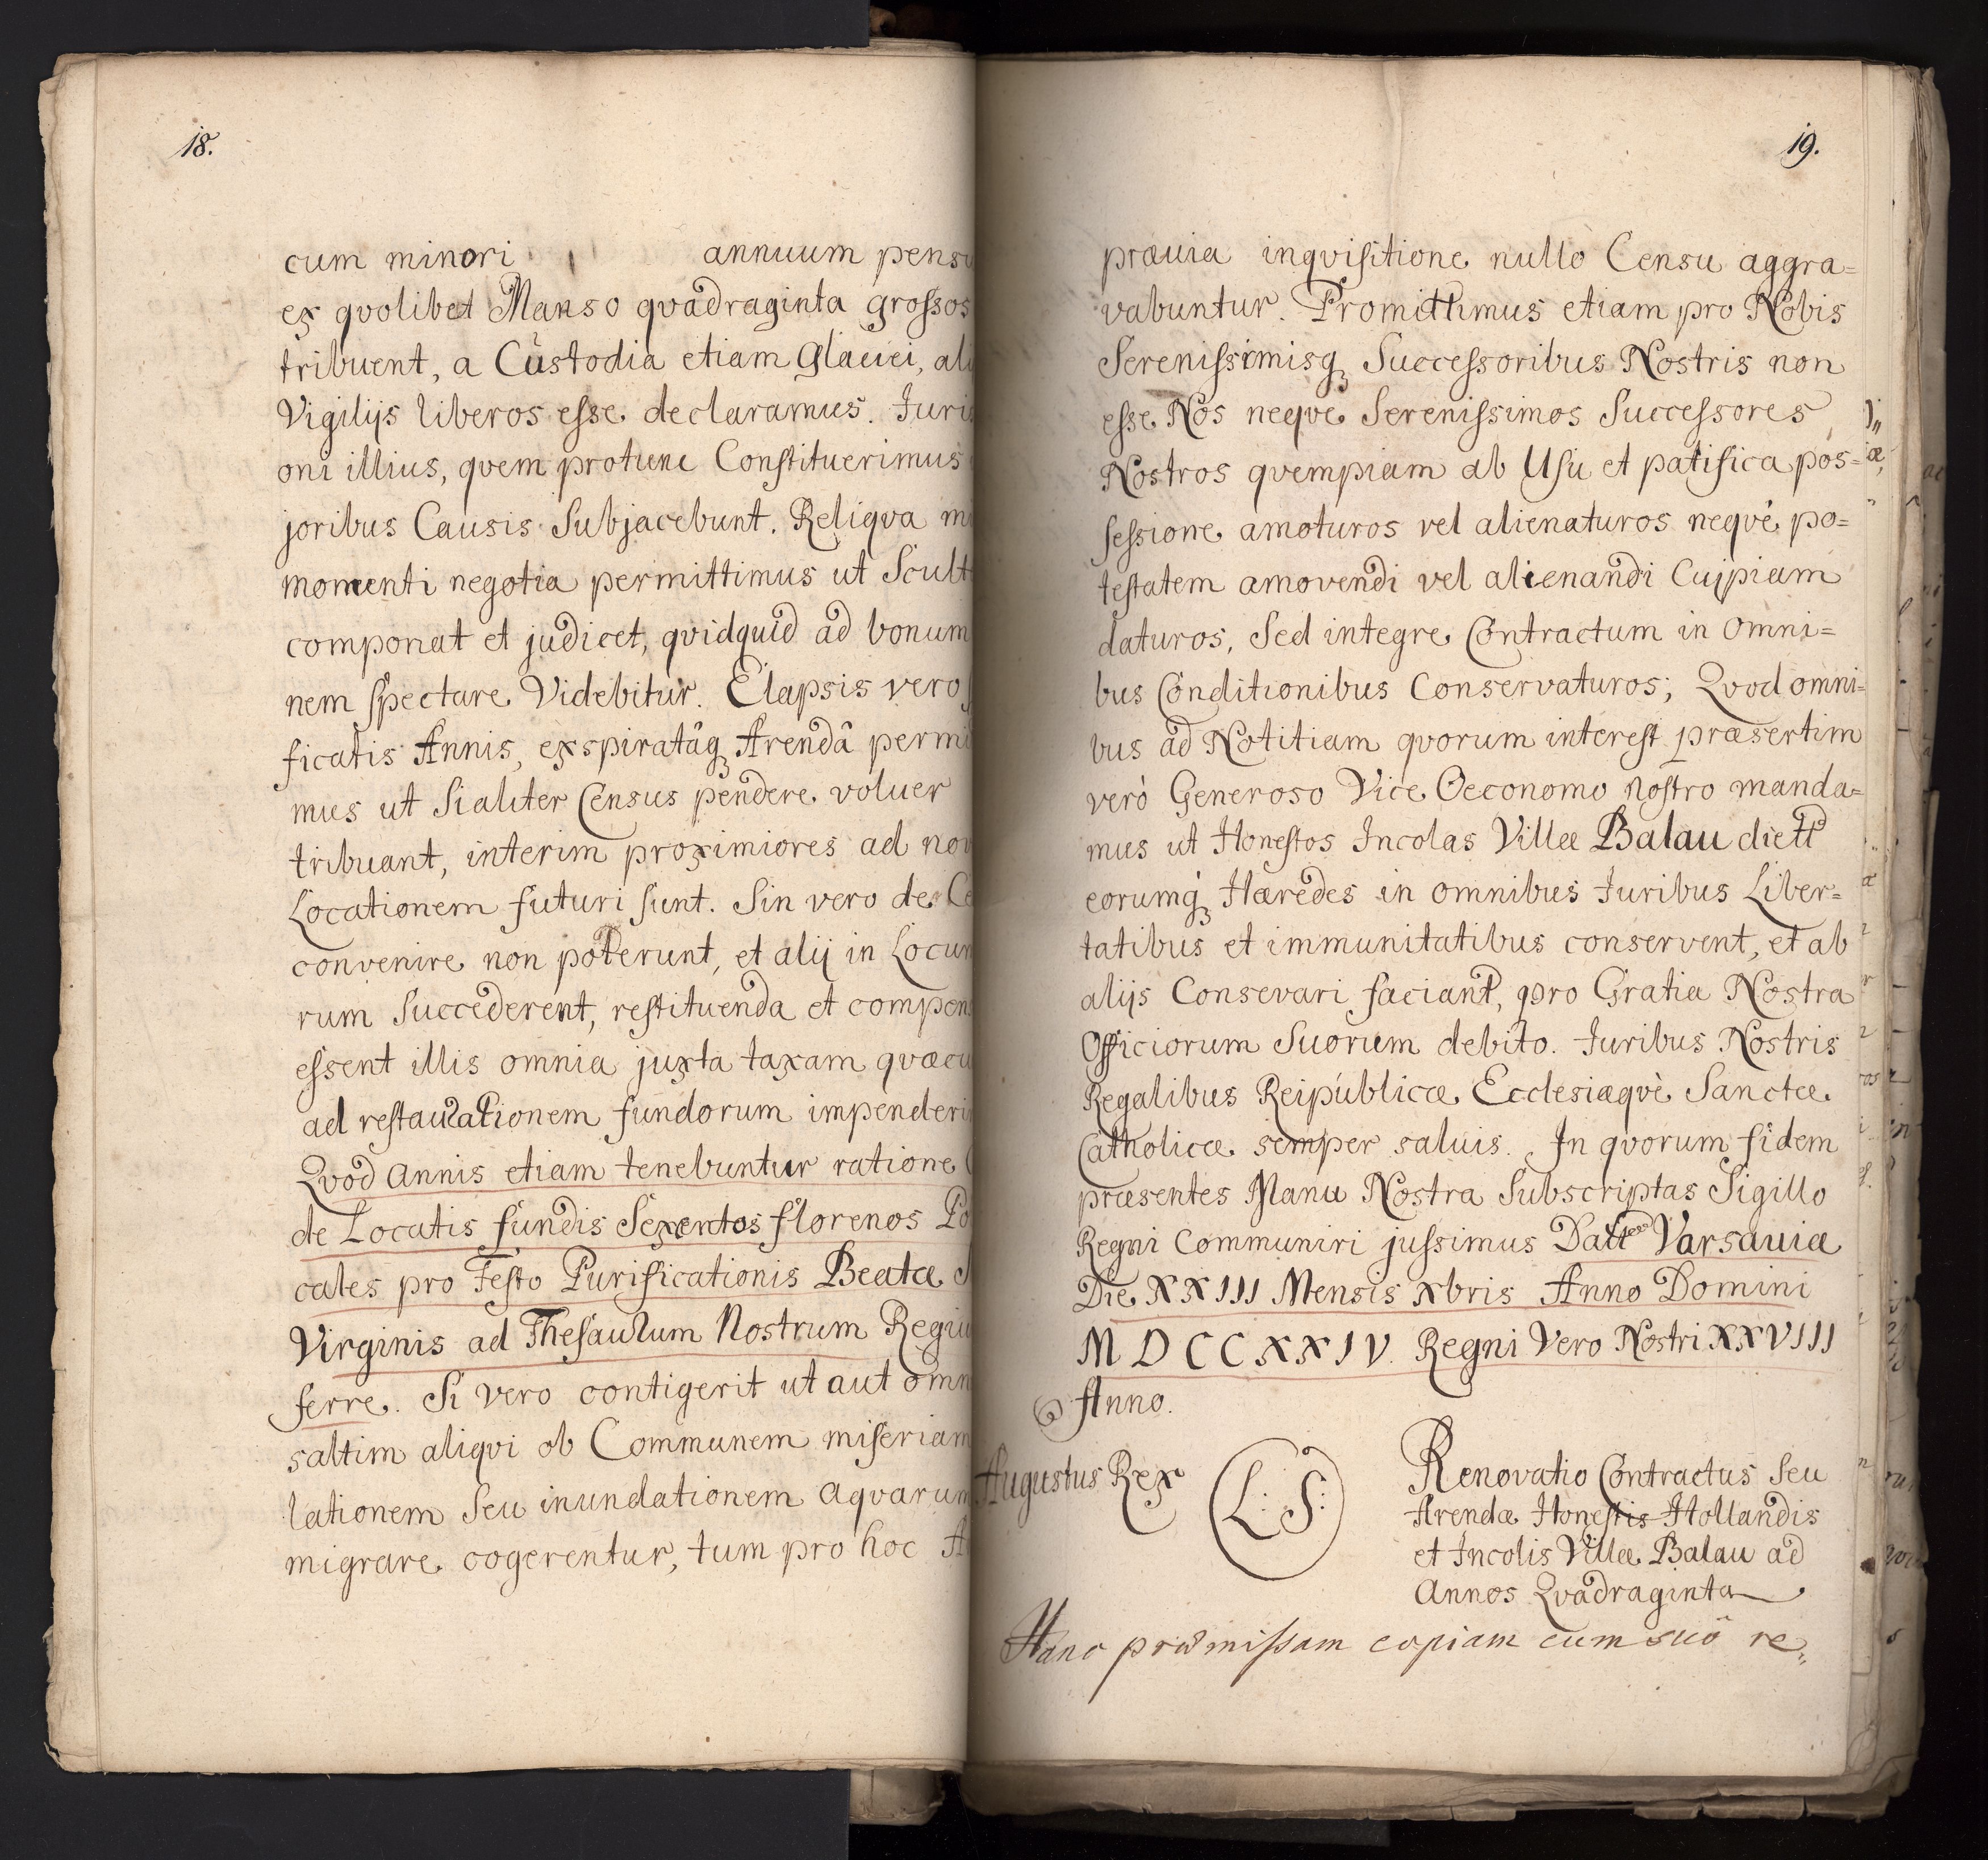 18.
cum minori annuum pens
ex qvolibet Manso qvadraginta grossos
tribuent, a Custodia etiam Glaciei, al
Vigilijs liberos esse declaramus. Juris
oni illius, qvem protunc Constituerimus
joribus Causis Subjacebunt. Reliqva m
momenti negotia permittimus ut Scult
componat et judicet, qvidquid ad bonum
nem spectare Videbitur. Elapsis vero
ficatis Annis, exspiratâq₃ Arendâ permi
mus ut si aliter Census pendere voluer
tribuant, interim proximiores ad nov
Locationem futuri sunt. Sin vero de Ce
convenire non poterunt, et alij in Locum
rum Succederent, restituenda et compens
essent illis omnia juxta taxam qvæcu
ad restaurationem fundorum impenderi
Qvod annis etiam tenebuntur ratione C
de Locatis fundis Sexcentos florenos Po
cales pro Festo Purificationis Beatæ
Virginis ad Thesaurum Nostrum Regiu
ferre. Si vero contigerit ut aut omn
saltim aliqvi ob Communem miseriam
lationem Seu inundationem aqvarum
migrare cogerentur, tum pro hoc A
19.
prævia inqvisitione nullo Censu aggra=
vabuntur. Promittimus etiam pro Nobis
Serenissimisq₃ Successoribus Nostris non
esse Nos neqve Serenissimos Successores
Nostros qvempiam ab Usu et patifica pos=
sessione amoturos vel alienaturos neqvè po=
testatem amovendi vel alienandi Cuipiam
daturos, Sed integre Contractum in omni=
bus Conditionibus Conservaturos; Qvod omni=
bus ad Notitiam qvorum interest præsertim
verò Generoso Vice Oeconomo nostro manda=
mus ut Honestos Incolas Villæ Balau dictt
eorumq₃ Hæredes in omnibus Juribus Liber=
tatibus et immunitatibus conservent, et ab
alijs Consevari faciant, pro Gratia Nostra
Officiorum Suorum debito. Juribus Nostris
Regalibus Reipublicæ Ecclesiæqvè Sanctæ
Catholicæ semper salvis. In qvorum fidem
præsentes Manu Nostra Subscriptas Sigillo
Regni Communiri jussimus Datt Varsaviæ
Die XXIII Mensis Xbris Anno Domini
MDCCXXIV. Regni Vero Nostri XXVIII
Anno.
Augustus Rex
L: S:
Renovatio Contractus Seu
Arendæ Honestis Hollandis
et Incolis Villæ Balau ad
Annos Qvadraginta
Hanc præmissam copiam cum suo re„